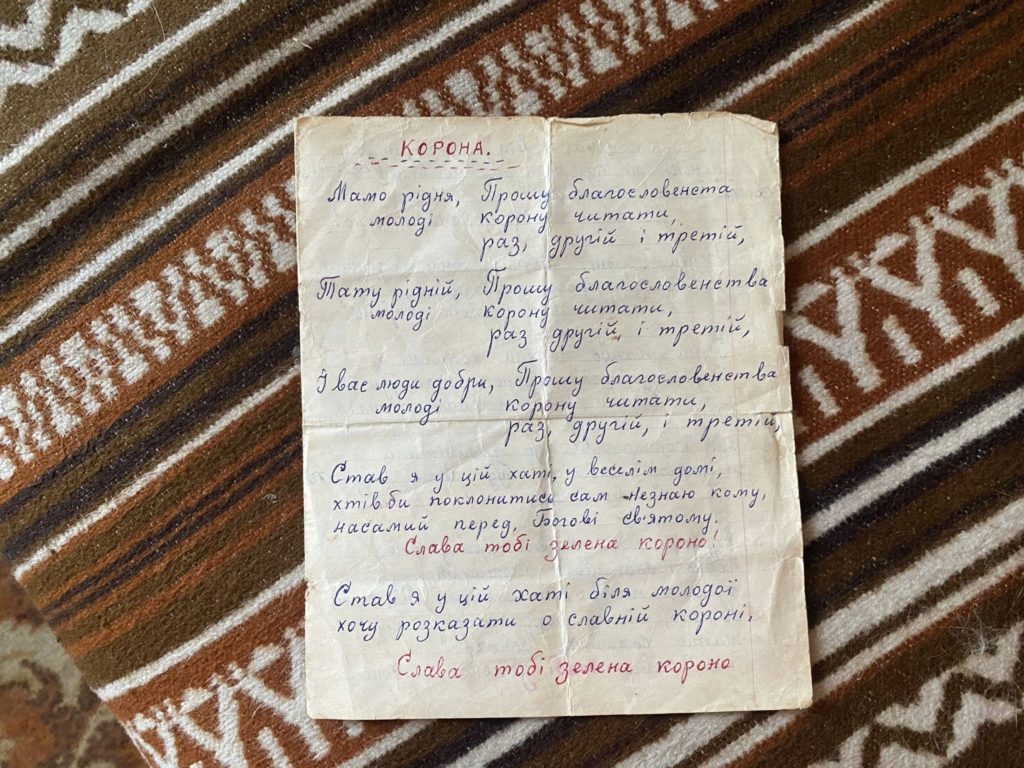 КОРОНА.
Мамо рідня, Прошу благословенста
молоді корону читати,
раз, другій і третій,
Тату рідній, Прошу благословенства
молоді корону читати,
раз другій, і третій,
І вас люди добри, Прошу благословенства
молоді корону читати,
раз, другій, і третій,
Став я у цій хаті, у веселім домі,
хтів би поклонитись сам незнаю кому,
насамий перед, Богові св'ятому.
Слава тобі зелена короно!
Став я у цій хаті біля молодої
хочу розказати о славній короні.
Слава тобі зелена короно